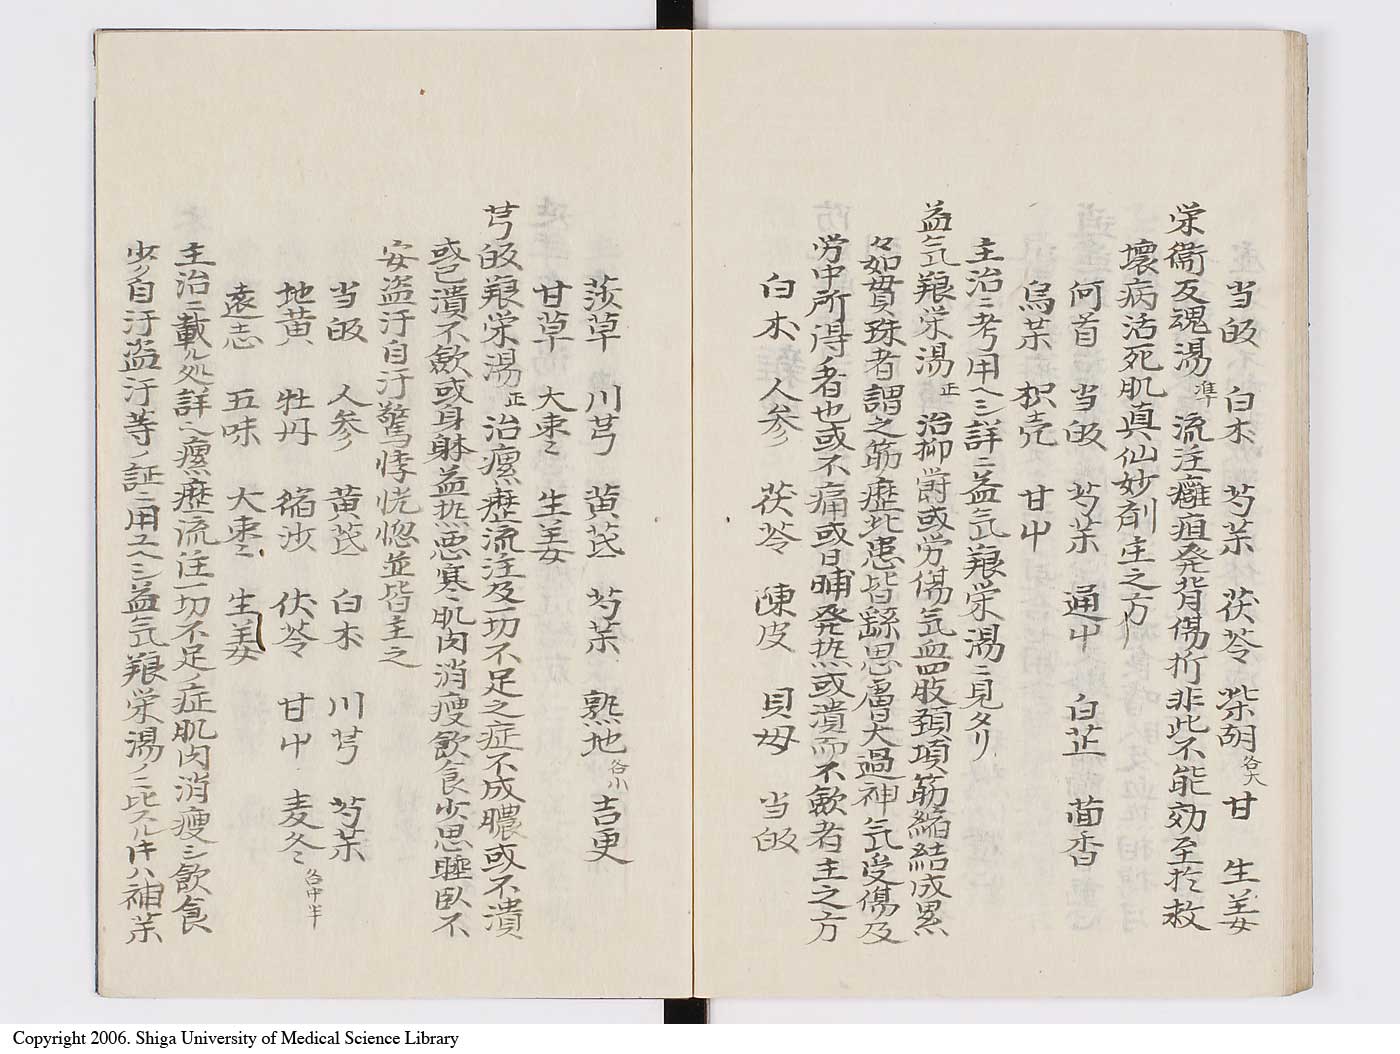 当皈 白朮 芍薬 茯苓 柴胡 各大 甘 生姜
栄衛反魂湯 準 流注癰疽発背傷折非此不能効至於救
壊病活死肌真仙妙剤主之方
何首 当皈 芍薬 通中 白芷 茴香
烏薬 枳壳 甘中
主治ニ考用ヘシ詳ニ益気養栄湯ニ見タリ
益気養栄湯 正 治抑欝或労傷気血四肢頚項筋縮結成累
々如貫珠者謂之筋癧此患皆繇思慮太過神気受傷及
労中所得者也或不痛或日晡発熱或潰而不歛者主之方
白朮 人参 茯苓 陳皮 貝母 当皈
莎草 川芎 黄芪 芍薬 熟地 各小 吉更
甘草 大枣 生姜
芎皈養栄湯 正 治瘰癧流注及一切不足之症不成膿或不潰
或已潰不歛或身躰益熱悪寒肌肉消痩飲食少思睡臥不
安盗汗自汗驚悸恍惚並皆主之
当皈 人参 黄芪 白朮 川芎 芍薬
地黄 牡丹 縮沙 伏苓 甘中 麦冬 各中半
遠志 五味 大枣 生姜
主治ニ載ル処詳也瘰癧流注一切不足ノ症肌肉消痩シ飲食
少ク自汗盗汗等ノ証ニ用ユヘシ益気養栄湯ノニ比スルキハ補薬
Copyright 2006. Shiga University of Medical Science Library